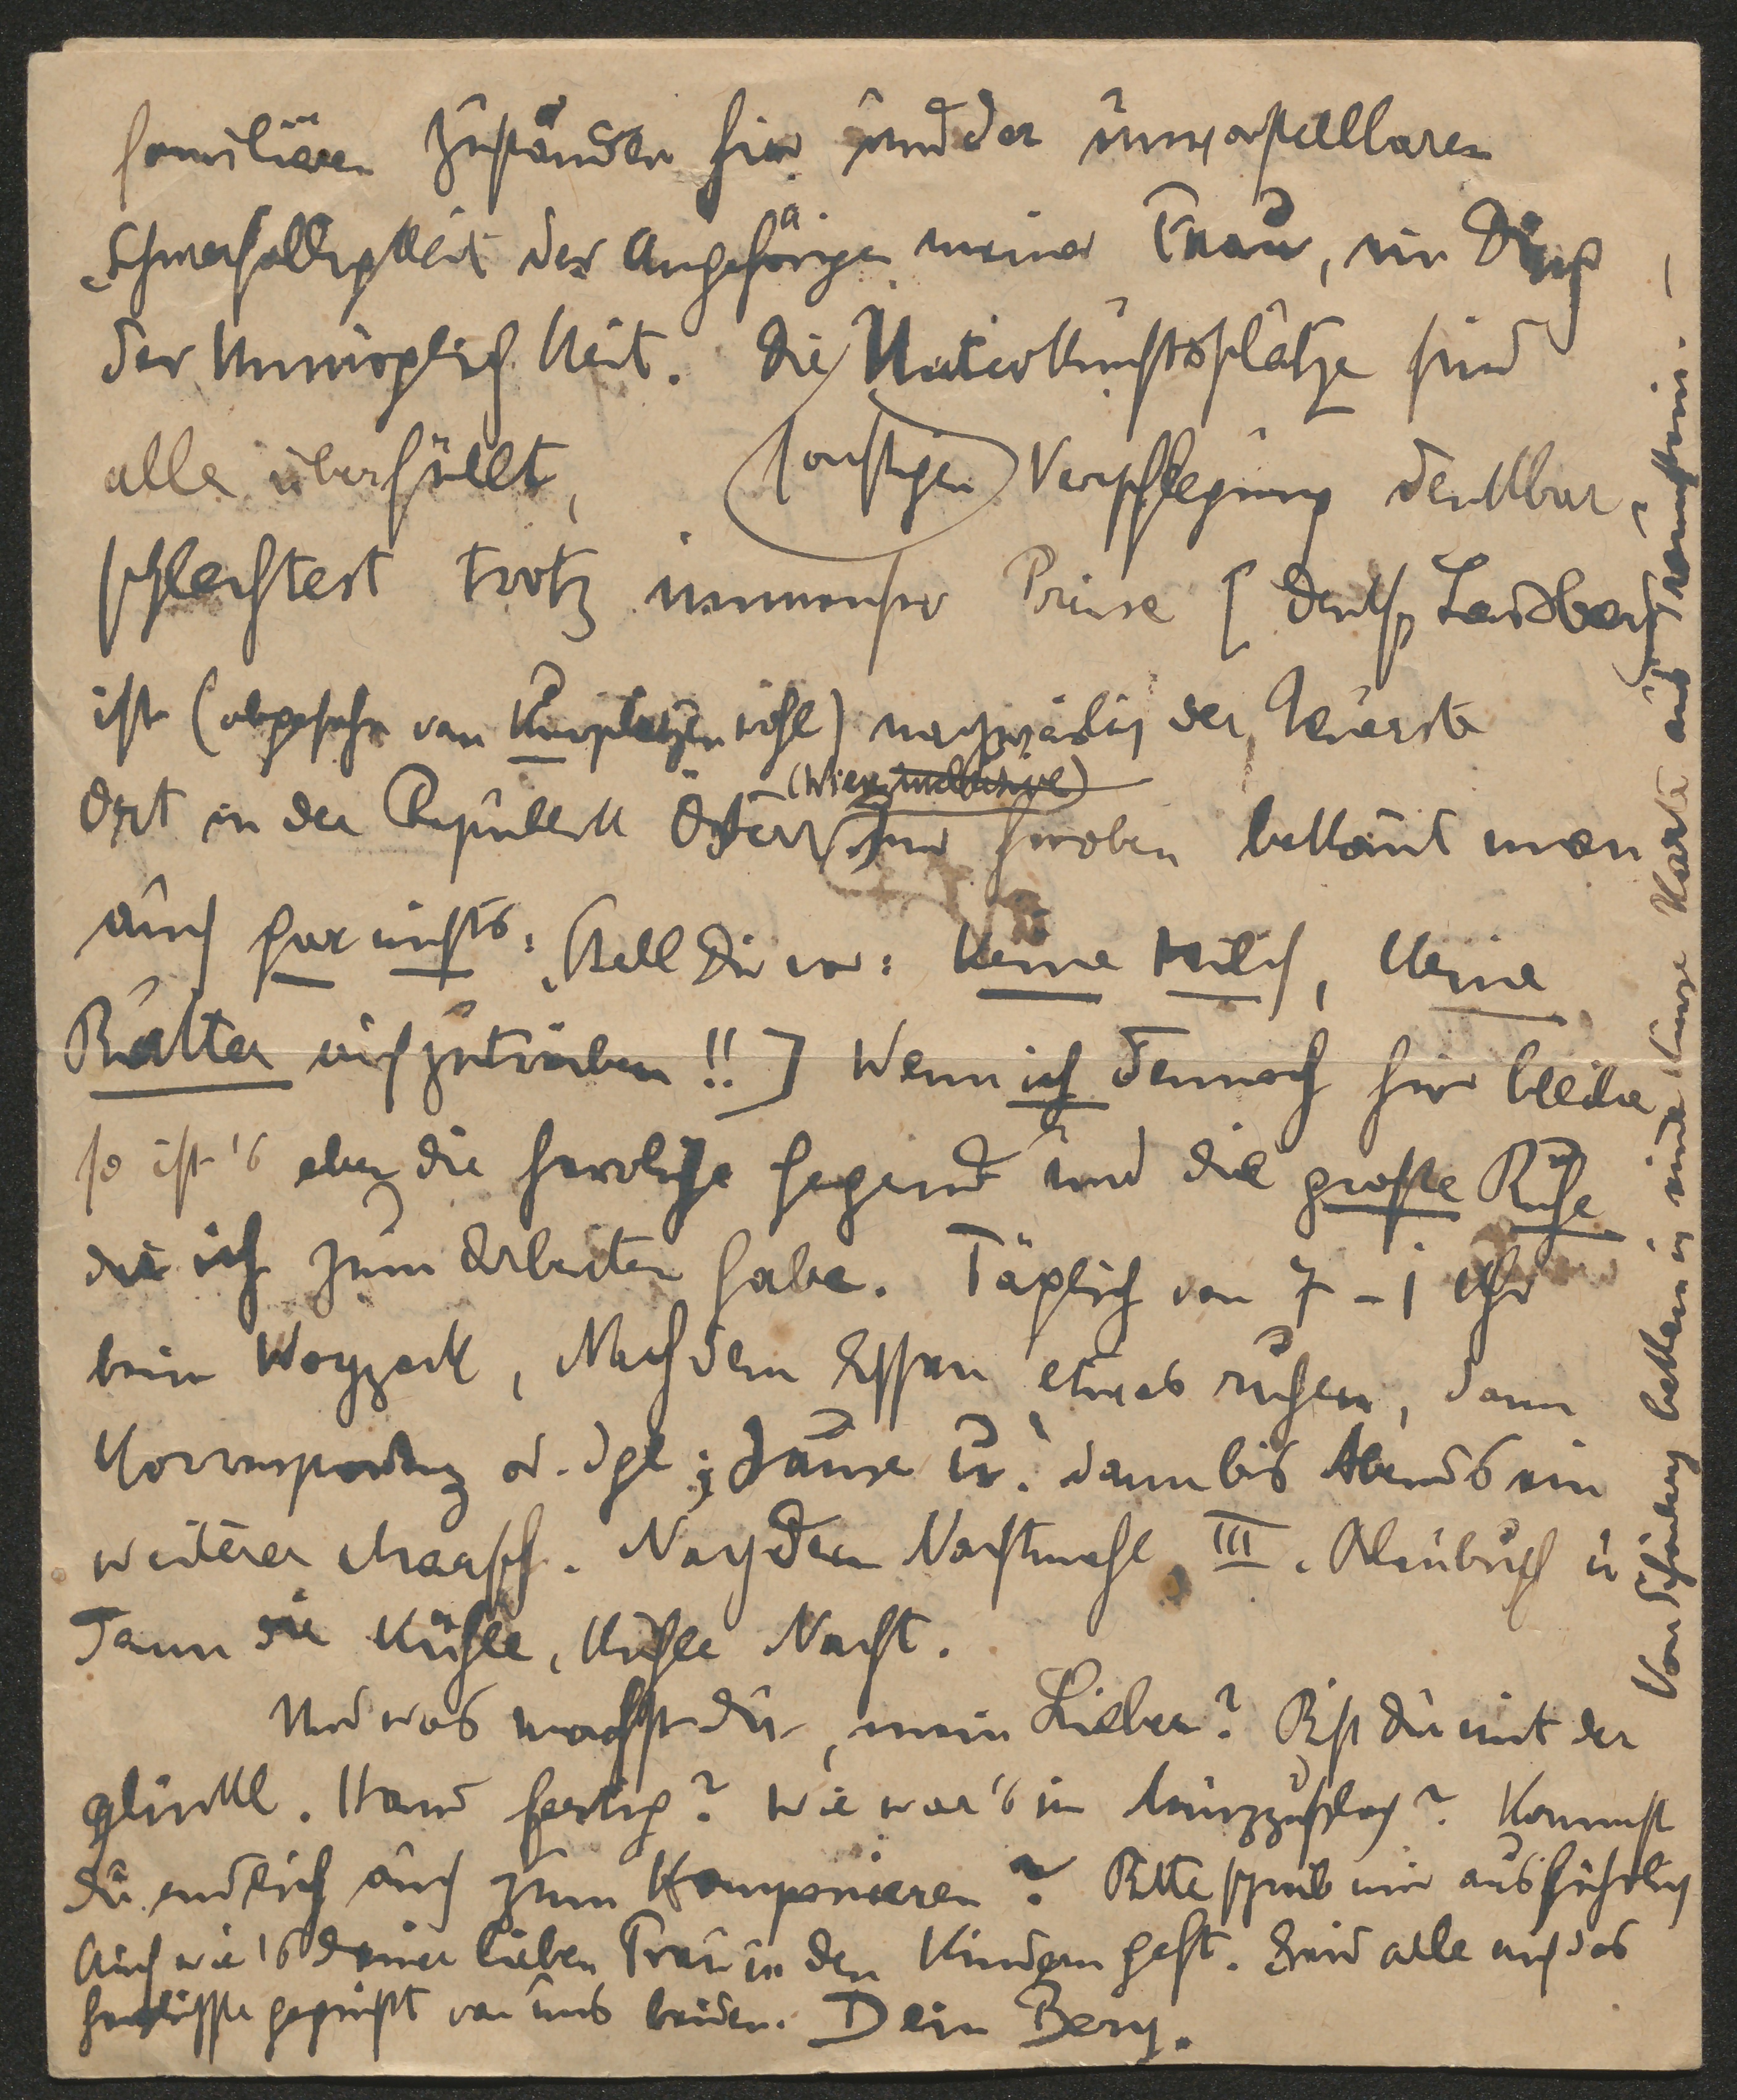 familiären Zustände hier und der unvorstellbaren
Schwerfälligkeit der Angehörigen meiner Frau, ein Ding
der Unmöglichkeit. Die Unterkunftsplätze sind
alle überfüllt, sonstigen Verpflegung denkbar
schlechtest trotz immenser Preise [Deutsch Landsberg
ist (abgesehn von Kurplätzen wohl) nachweislich der teuerste
Ort in der Republik Österr. (Wien inclusive) Und heroben bekommt man
auch gar nichts: Stell Dir vor: keine Milch, keine
Butter aufzutreiben!!] Wenn ich dennoch hier bleibe
so ist's eben die herrliche Gegend und die große Ruhe
die ich zum Arbeiten habe. Täglich von 7–1 Uhr
beim Wozzeck, Nach dem Essen etwas ruhen, dann
Korrespondenz od. dgl; Jause u. dann bis Abends ein
weiterer Marsch. Nach dem Nachtmahl III. u
dann die kühle, kühle Nacht.
Und was machst Du, mein Lieber? Bist Du mit der
glückl. Hand fertig? Wie war's in Mürzzuschlag? Kommst
Du endlich auch zum Komponieren? Bitte schreib mir ausführlich
Auch wie's Deiner lieben Frau u den Kindern geht. Seid alle auf das
herzlichste gegrüßt von uns beiden. Dein Berg.
Von Schönberg bekam ich eine kurze Karte aus Traunstein. —